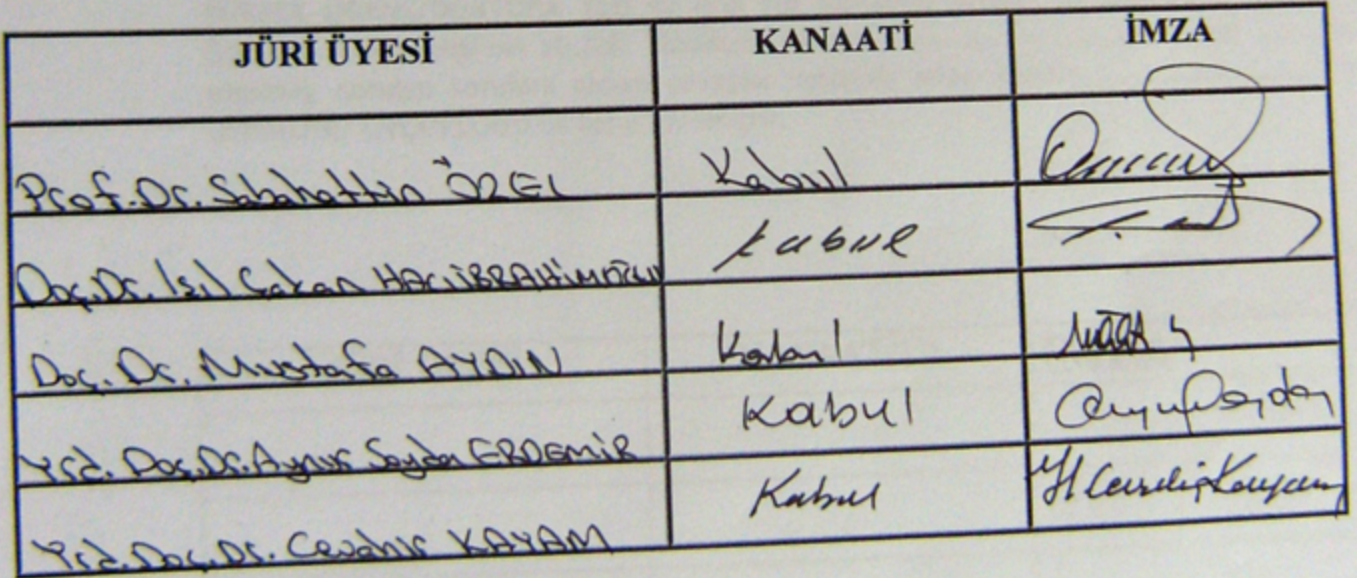 JÜRİ ÜYESİ KANAATİ İMZA
Prof. Dr. Sabahattin ÖZEL Kabul
Doç. Dr. Işıl Çakan HACIİBRAHİMOĞLU Kabul
Doç. Dr. Mustafa AYDIN Kabul
Yrd. Doç. Dr. Aynur Soydan ERDEMİR Kabul
Yrd. Doç. Dr. Cevahir KAYAM Kabul